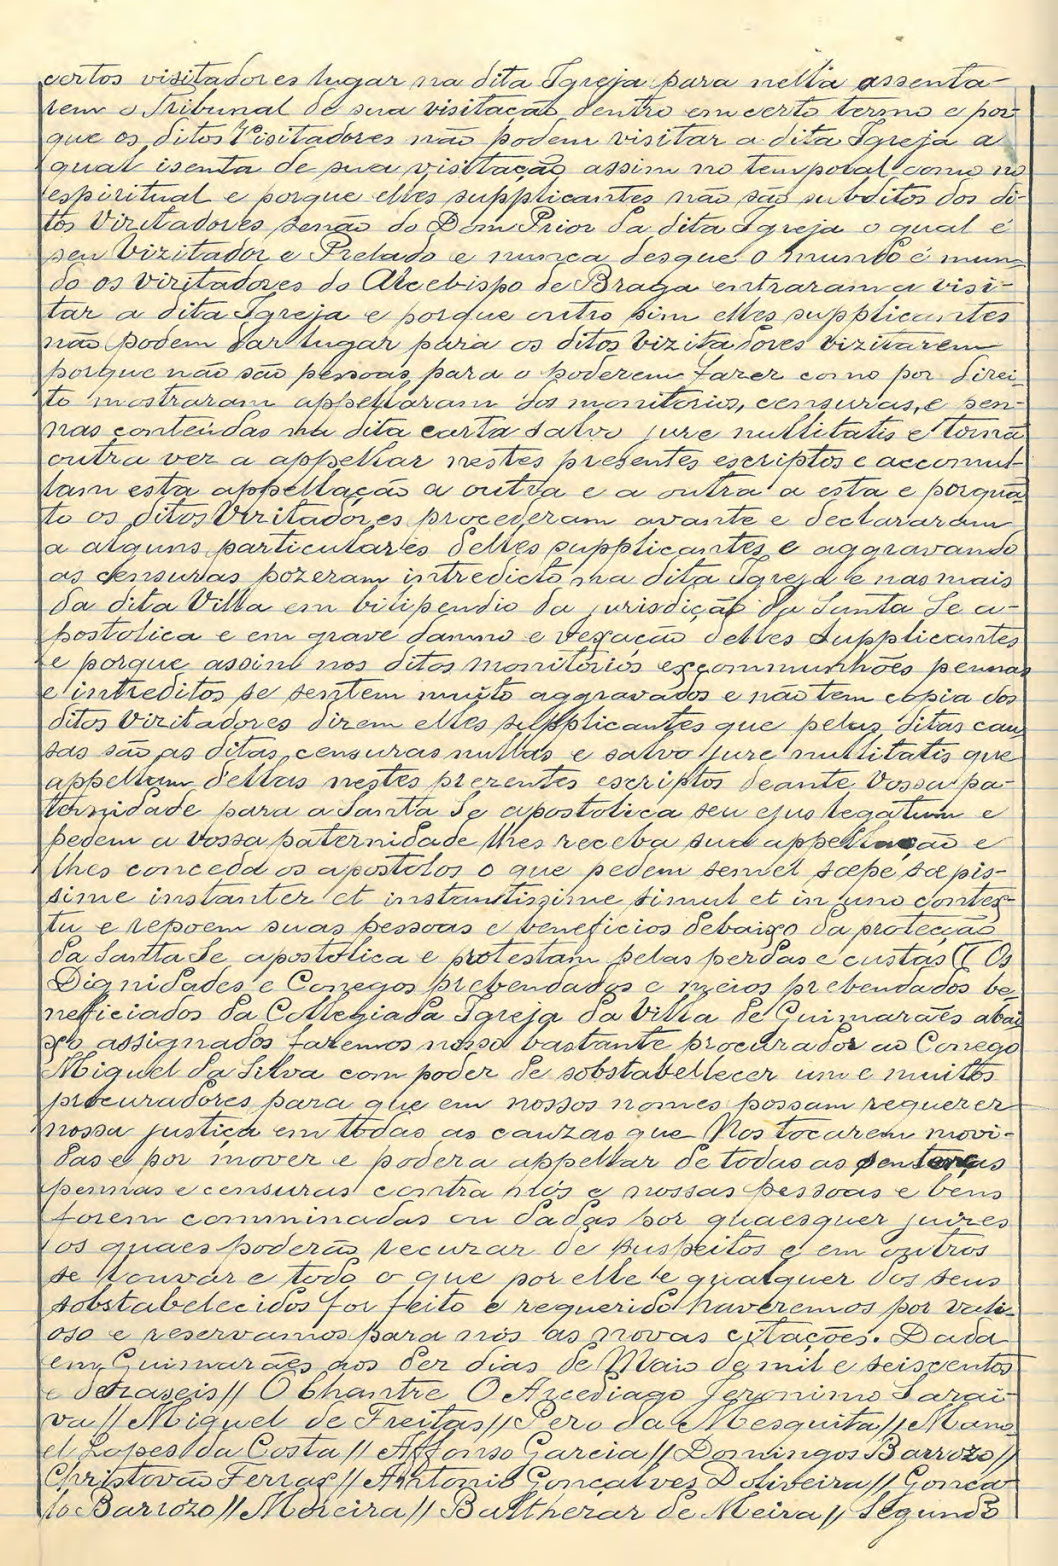 certos visitadores lugar na dita Igreja para nella assenta-
rem o Tribunal de sua visitação dentro em certo termo e por
que os ditos Visitadores não podem visitar a dita Igreja a
qual isenta de sua visitação assim no temporal como no
espiritual e porque elles supplicantes não são subditos dos di-
tos Vizitadores senão do Dom Prior da dita Igreja o qual é
seu Vizitador e Prelado e nunca desque o mundo é mun-
do os vizitadores do Arcebispo de Braga entraram a visi-
tar a dita Igreja e porque outro sim elles supplicantes
não podem dar lugar para os ditos vizitadores vizitarem
porque não são pessoas para o poderem fazer como por direi
to mostraram appellaram dos monitorios, censuras, e pen-
nas conteúdas na dita carta salvo jure nullitatis e torna
outra vez a appellar nestes presentes escriptos e accomul-
lam esta appellação a outra e a outra a esta e porquã
to os ditos Vizitadores procederam avante e declararam
a alguns particulares delles supplicantes e aggravando
as censuras pozeram intredicto na dita Igreja e nas mais
da dita Villa em bilipendio da jurisdição da Santa Se a-
postolica e em grave damno e vexação delles Supplicantes
e porque assim nos ditos monitoriós excommunhões pennas
e intreditos se sentem muito aggravados e não tem copia dos
ditos Vizitadores dizem elles supplicantes que pelas ditas cau
sas são as ditas censuras nullas e salvo jure nullitatis que
appellam dellas nestes prezentes escriptos deante Vossa pa-
ternidade para a Santa Se apostolica seu ejus legatum e
pedem a Vossa paternidade lhes receba sua appellação e
lhes conceda os apostolos o que pedem semel sæpe sæpis-
sime instanter et instantissime simul et in uno contex-
tu e repoem suas pessoas e beneficios debaixo da protecção
da Santa Se apostolica e protestam pelas perdas e custas (( Os
Dignidades e Conegos prebendados e meios prebendados be-
neficiados da Collegiada Igreja da Villa de Guimarães abai
xo assignados fazemos nosso bastante procurador ao Conego
Miguel da Silva com poder de sobstabellecer um e muitos
procuradores para que em nossos nomes possam requerer
nossa justiça em todas as cauzas que Nos tocarem movi-
das e por mover e podera appellar de todas as sentenças
pennas e censuras contra nós e nossas pessoas e bens
forem comminadas ou dadas por quaesquer juizes
os quaes poderão recuzar de suspeitos e em outros
se louvar e todo o que por elle e qualquer dos seus
sobstabelecidos for feito e requerido haveremos por vali-
oso e reservamos para nós as novas citações. Dada
em Guimarães aos dez dias de Maio de mil e seiscentos
e dezaseis // O Chantre O Arcediago Jeronimo Sarai-
va // Miguel de Freitas // Pero da Mesquita // Mano
el Lopes da Costa // Affonso Garcia // Domingos Barrozo //
Christovão Ferras // Antonio Gonçalves Doliveira // Gonça
lo Barrozo // Moreira // Balthezar de Meira // Segundo